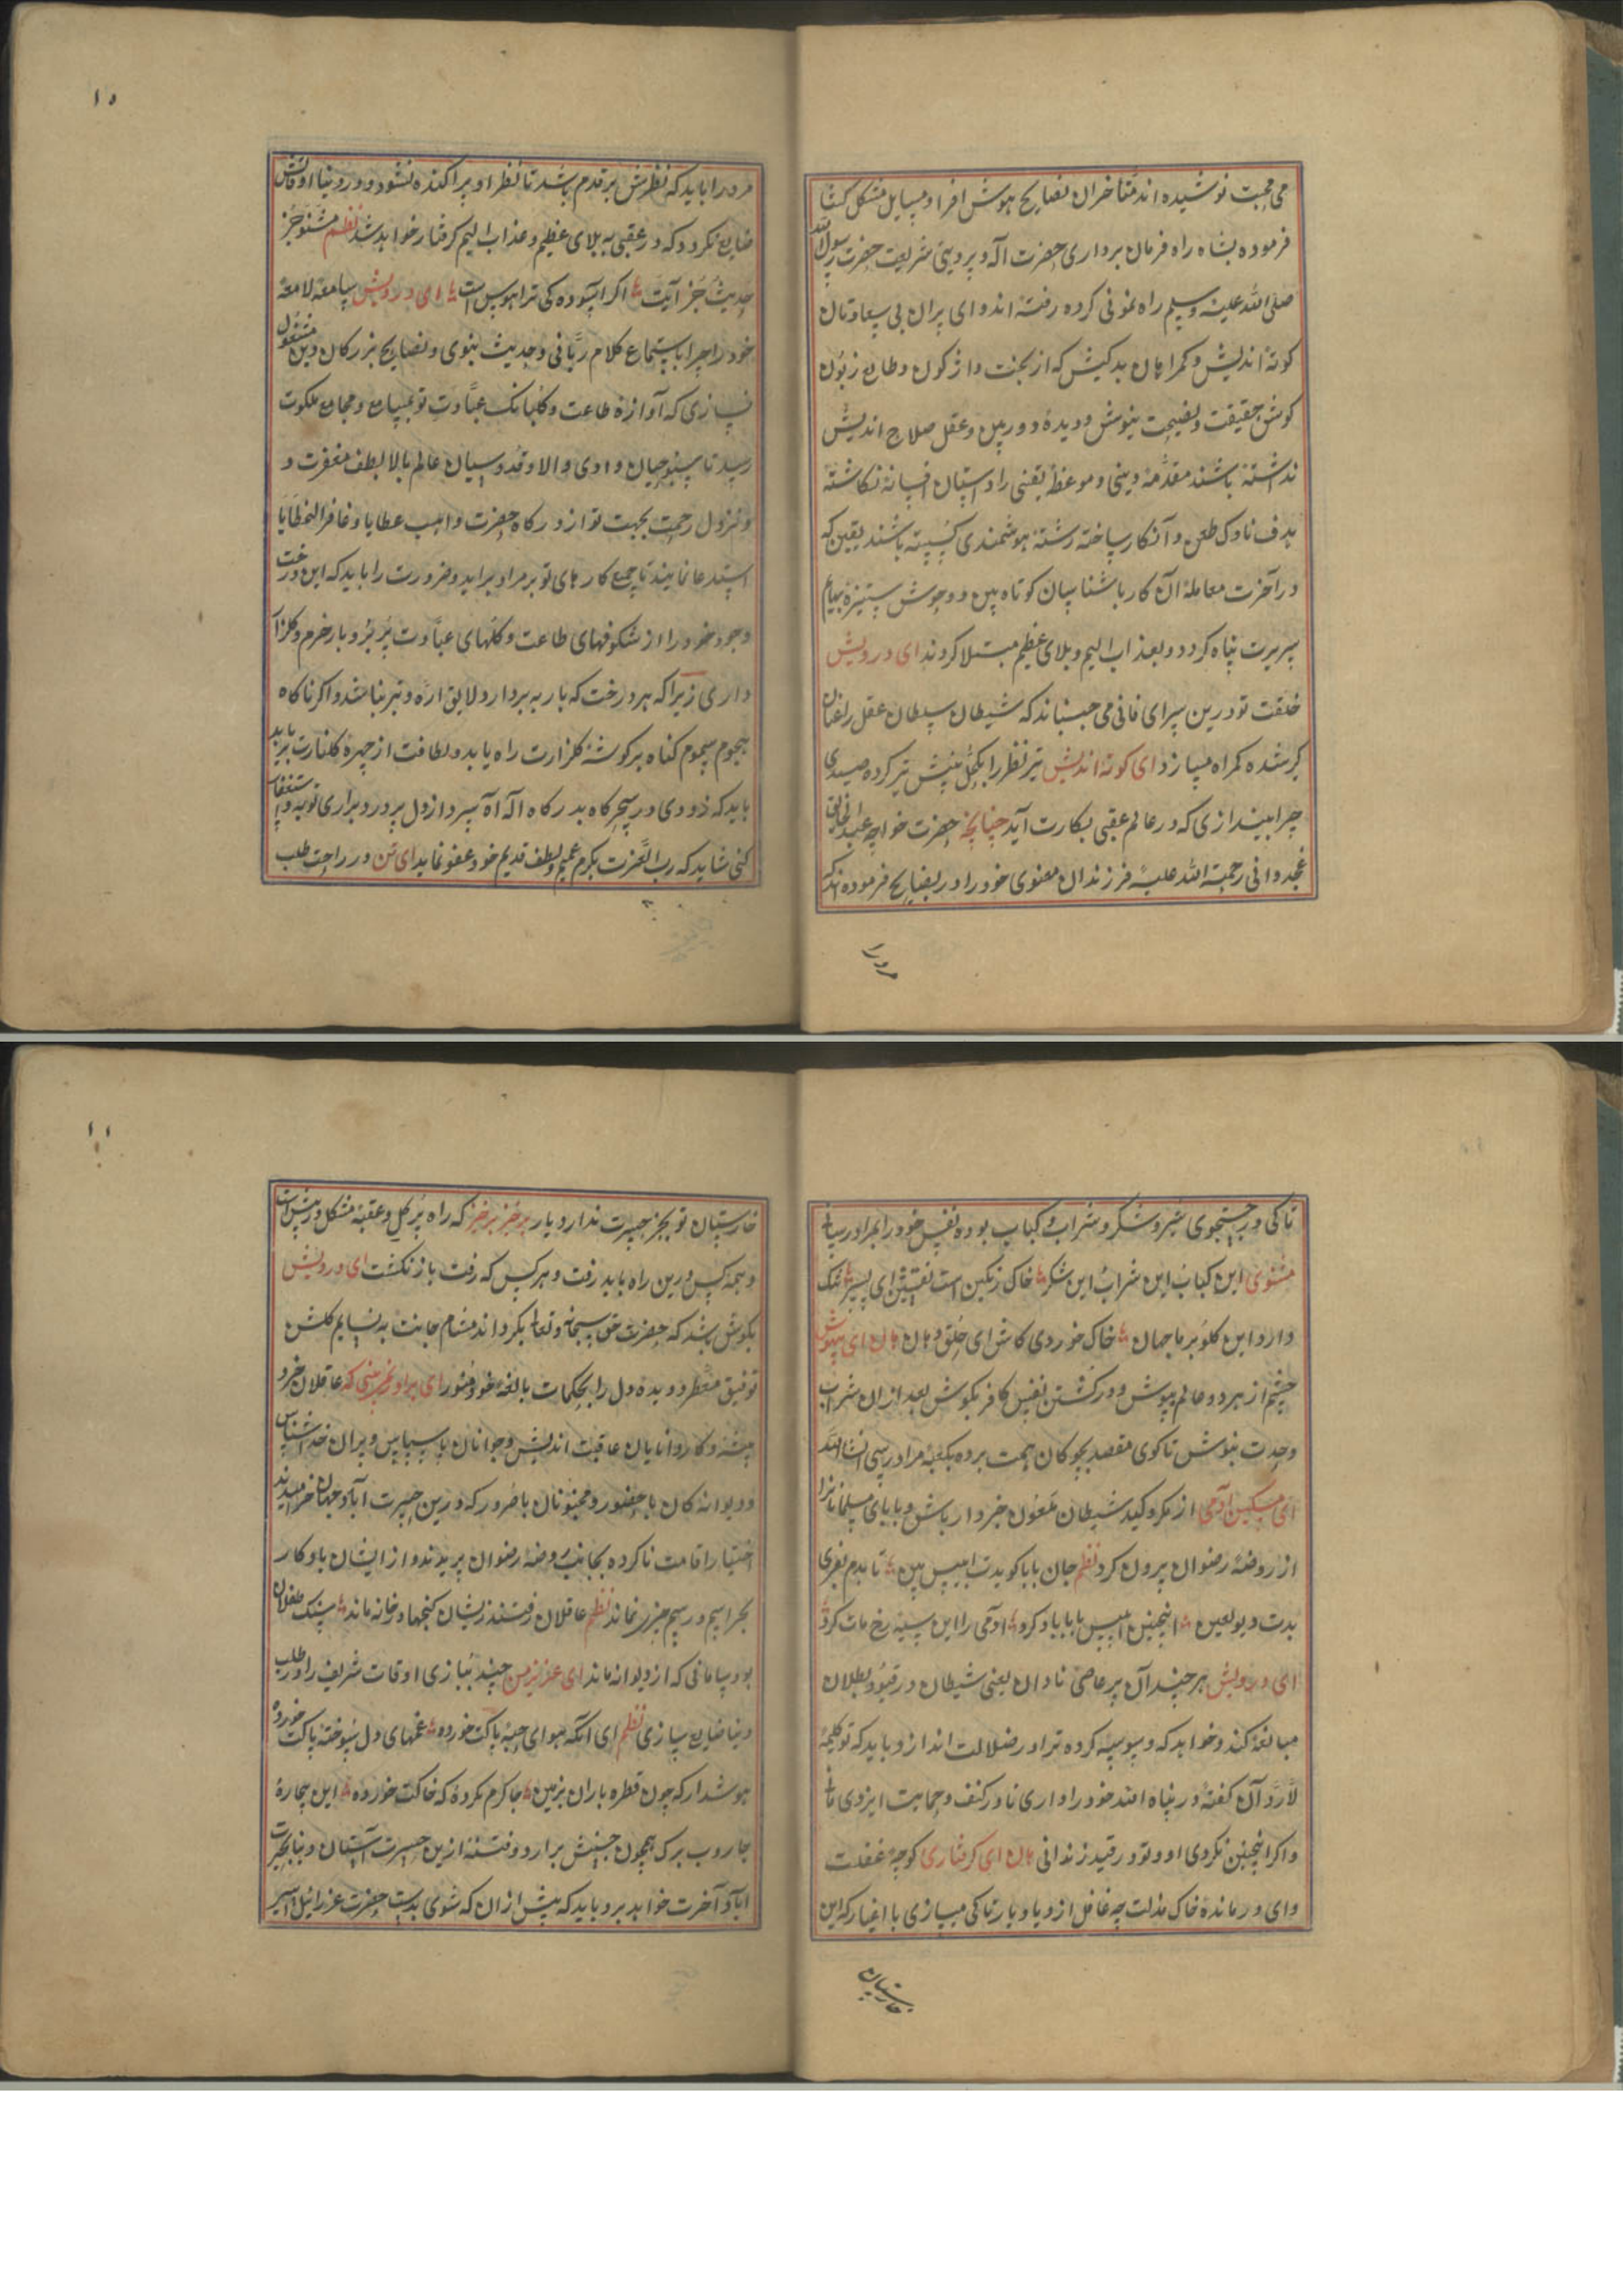 می محبت نوشیده اند متاخران نصایح هوش افزا و مسایل مشکل کشا
فرموده بشاه راه فرمان برداری حضرت اله و پردینی شریعت حضرت رسول الله
صلی الله علیه وسلم راه نمونی کرده رفته اند و ای پران بی سعادتان
کوته اندیش و کمراهان بدکیش که از بخت واژکون و طالع زبون
کوش حقیقت و نصیحت نیوش و دیدهٔ دوربین و عقل صلاح اندیش
نداشته باشند مقدمهٔ دینی و موعظهٔ یقینی را داستان افسانه انکاشته
هدف ناوک طعن و انکار ساخته رشتهٔ هوشمندی کسسته باشند یقین که
در آخرت معاملهٔ آن کار باشناسان کوتاه بین و وحوش ستیزه بهایم
سیرت تباه کردد و بعذاب الیم و بلای عظیم مبتلا کردند ای درویش
خلقت تو درین سرای فانی می جسباند که شیطان سلطان عقل را عنان
کر شده کمراه میسازد ای کوته اندیش تیر نظر را بکحل بینش تیز کرده صیدی
چرا نیندازی که در عالم عقبی بکارت آید چنانچه حضرت خواجه عبدالخالق
غجدوانی رحمة الله علیه فرزندان معنوی خود را در نصایح فرموده اند که
مرد را
۱۰
مرد را باید که نظرش بر قدم باشد تا نظر او پراکنده نشود و در دنیا اوقاتش
ضایع نکردد که در عقبی به بلای عظیم و عذاب الیم کرفتار خواهد شد نظم مشنو جز
حدیث جز آیت اکر آسوده کی ترا هوس است ای درویش سامعهٔ لامعهٔ
خود را چرا باستماع کلام ربانی و حدیث نبوی و نصایح بزرکان دین مشغول
نسازی که آوازهٔ طاعت و کلبانک عبادت تو بمسامع و مجامع ملکوت
رسد تا سبوحیان وادی والا و قدوسیان عالم بالا بلطف مغفرت و
و نزول رحمت بجهت تو از درکاه حضرت واهب عطایا و غافر الخطایا
استدعا نمایند تا جمیع کارهای تو بر مراد براید و ضرورت را باید که این درخت
وجود خود را از شکوفهای طاعت و کلهای عبادت پر بر و بار خرم و کلزار
داری زیرا که هر درخت که بار به بردارد لایق اره و تبر نباشد و اکر ناکاه
هجوم سموم کناه بر کوشهٔ کلزارت راه یابد و لطافت از چهرهٔ کلنارت برباید
باید که زودی در سحرکاه بدرکاه اله آه سرد از دل پردرد براری توبه و استغفار
کنی شاید که رب العزت بکرم عمیم و لطف قدیم خود عفو نماید ای تن در راحت طلب
تا کی در جستجوی شیر و شکر و شراب و کباب بوده نفس خود را بمراد رسانی
مثنوی این کباب این شراب این شکر خاک رنکین است نقشین ای پسر
دارد این کلو بر ما جهان خاک خوردی کاش ای حلق و دهان هان ای بیهوش
چشم از هر دو عالم بپوش و در کشتن نفس کافر بکوش بعد ازان شراب
وحدت بنوش تا کوی مقصد بچوکان همت برده بکعبهٔ مراد رسی انشاالله
ای مسکین آدمی از مکر و کید شیطان ملعون خبردار باش و بابای مسلمانانرا
از روضهٔ رضوان برون کرد نظم جان بابا کویدت ابلیس بین تا بدم بفریبد
بدت دیو لعین اینچنین ابلیس با بابا کرد آدمی را این سیه رخ مات کرد
ای درویش هر چند آن پر عاصی نادان یعنی شیطان در قید و بطلان
مبالغه کند و خواهد که وسوسه کرده ترا در ضلالت اندازد باید که تو کلمهٔ
لارد آن کفته در پناه امتد خود را داری تا در کنف و حمایت ایزدی مانی
و اکر اینچنین نکردی او و تو در قید زندانی هان ای کرفتاری کوچهٔ غفلت
و ای درماندهٔ خاک مذلت چه غافل از دیار و یار تا کی میسازی با اغیار که این
خارستان
۱۱
خارستان تو بجز حسرت ندارد یار برخیز برخیز که راه پر کل و عقبه مشکل در پیش است
و همه کس درین راه باید رفت و هر کس که رفت باز نکشت ای درویش
بکوش باشد که حضرت حق سبحانه و تعالی بکرداند مشام جانت به نسایم کلشن
توفیق معطر و دیده دل را بحکمات بالغه خود منور ای برادر نمی بینی که عاقلان خرد
پیشه و کاردانایان عاقبت اندیش و جوانان با سپاس و پیران خداشناس
و دیوانه کان با حضور و مجنونان باضرور که درین حسرت آباد جهان خرامیدند
اختیار اقامت ناکرده بجانب روضهٔ رضوان پریدند و از ایشان یادکار
بجز اسم و رسم چیزی نماند نظم عاقلان رفتند زیشان کنجها در خانه ماند سنک طفلان
بود سامانی که از دیوانه ماند ای عزیز من چند ببازی اوقات شریف را در طلب
دنیا ضایع سازی نظم ای انکه هوای حبه پاکت خورده غمهای دل سوخته پاکت خورده
هوشدار که چون قطره باران بزمین جا کرم نکردهٔ که خاکت خورده این بیچارهٔ
جاروب برک همچون جنبش برارد و فتنه ازین حسرت آستان دنیا بحسرت
آباد آخرت خواهد برد باید که پیش ازان که شوی بدست حضرت عزرائیل اسیر